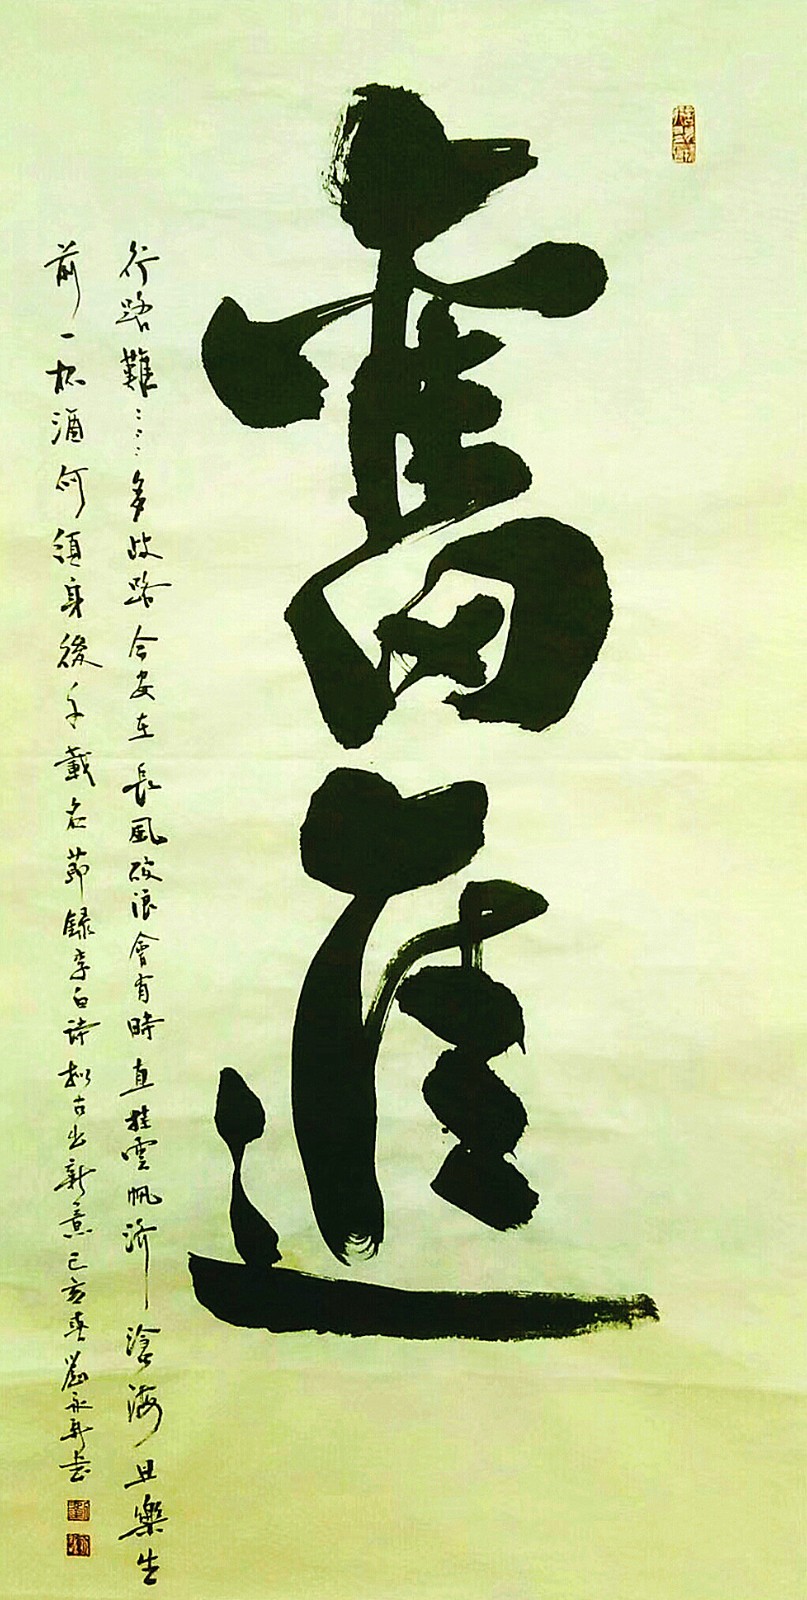 奮進
行路難〻〻〻多歧路今安在長風破浪會有時直挂雲帆濟滄海且樂生
前一杯酒何須身後千載名節録李白詩擬古出新意己亥春劉永